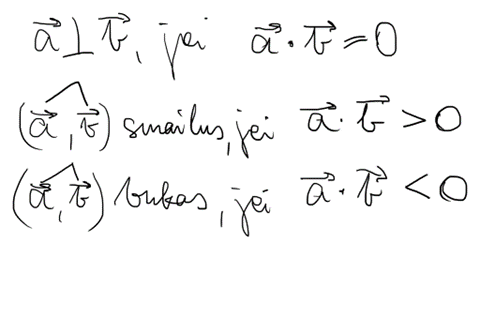 a⃗ ⊥ b⃗, jei a⃗ · b⃗ = 0
(a⃗ ,^ b⃗) smailus, jei a⃗ · b⃗ > 0
(a⃗ ,^ b⃗) bukas, jei a⃗ · b⃗ < 0